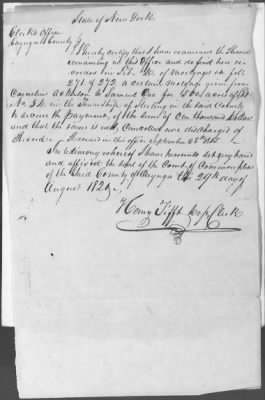 State of New York.
Clerks Office
Cayuga County } I hereby certify that I have examined the
remaining in this Office and do find here re-
corded in Lib. of Mortgages on fol.
271 & 272, a certain mortgage given from
Cornelius to Samuel for 500 acres of
No. in the township of Sterling in the said County
to secure the payment of the sum of One thousand Dollars
and that the same is not Cancelled nor discharged of
Record in this office September
In testimony whereof I have hereunto set my hand
and affixed the seal of the Court of Common pleas
of the said County of Cayuga the 29th day of
August 182
Henry Tifft Dep Clerk